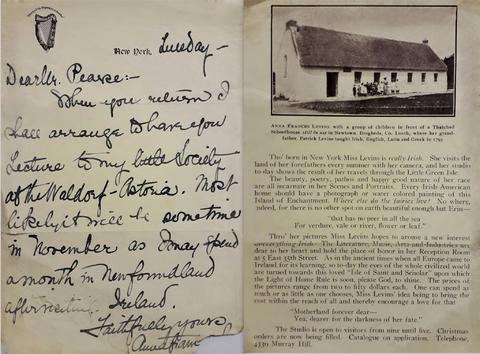 New York.
Tuesday –
Dear Mr. Pearse:–
When you return I
shall arrange to have you
Lecture to my little Society
at the Waldorf-Astoria. Most
likely it will be sometime
in November as I may spend
a month in Newfoundland
after visiting Ireland.
Faithfully yours
Anna Frances Levins with a group of children in front of a Thatched
Schoolhouse still in use in Newtown, Drogheda, Co. Louth, where her grand-
father, Patrick Levins taught Irish, English, Latin and Greek in 1793
Tho' born in New York Miss Levins is really Irish. She visits the
land of her forefathers every summer with her camera, and her studio
to-day shows the result of her travels through the Little Green Isle.
The beauty, poetry, pathos and happy good nature of her race
are all incarnate in her Scenes and Portraits. Every Irish-American
home should have a photograph or water colored painting of this
Island of Enchantment. Where else do the fairies live! No where,
indeed, for there is no other spot on earth beautiful enough but Erin—
"that has no peer in all the sea
For verdure, vale or river, flower or leaf."
Thro' her pictures Miss Levins hopes to arouse a new interest
in everything Irish. The Literature, Music, Arts and Industries are
dear to her heart and hold the place of honor in her Reception Room
at 5 East 35th Street. As in the ancient times when all Europe came to
Ireland for its learning, so to-day the eyes of the whole civilized world
are turned towards this loved "Isle of Saint and Scholar" upon which
the Light of Home Rule is soon, please God, to shine. The prices of
the pictures range from two to fifty dollars each. One can spend as
much or as little as one chooses, Miss Levins' idea being to bring the
cost within the reach of all and thereby encourage a love for that
"Motherland forever dear—
Yea, dearer for the darkness of her fate."
The Studio is open to visitors from nine until five. Christmas
orders are now being filled. Catalogue on application. Telephone,
4339 Murray Hill.